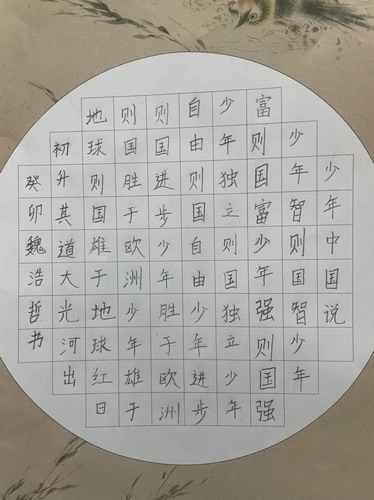 少年中国说
少年智则国智少年
富则国富少年强则国强
少年独立则国独立少年
自由则国自由少年进步
则国进步少年胜于欧洲
则国胜于欧洲少年雄于
地球则国雄于地球红日
初升其道大光河出
癸卯魏浩哲书